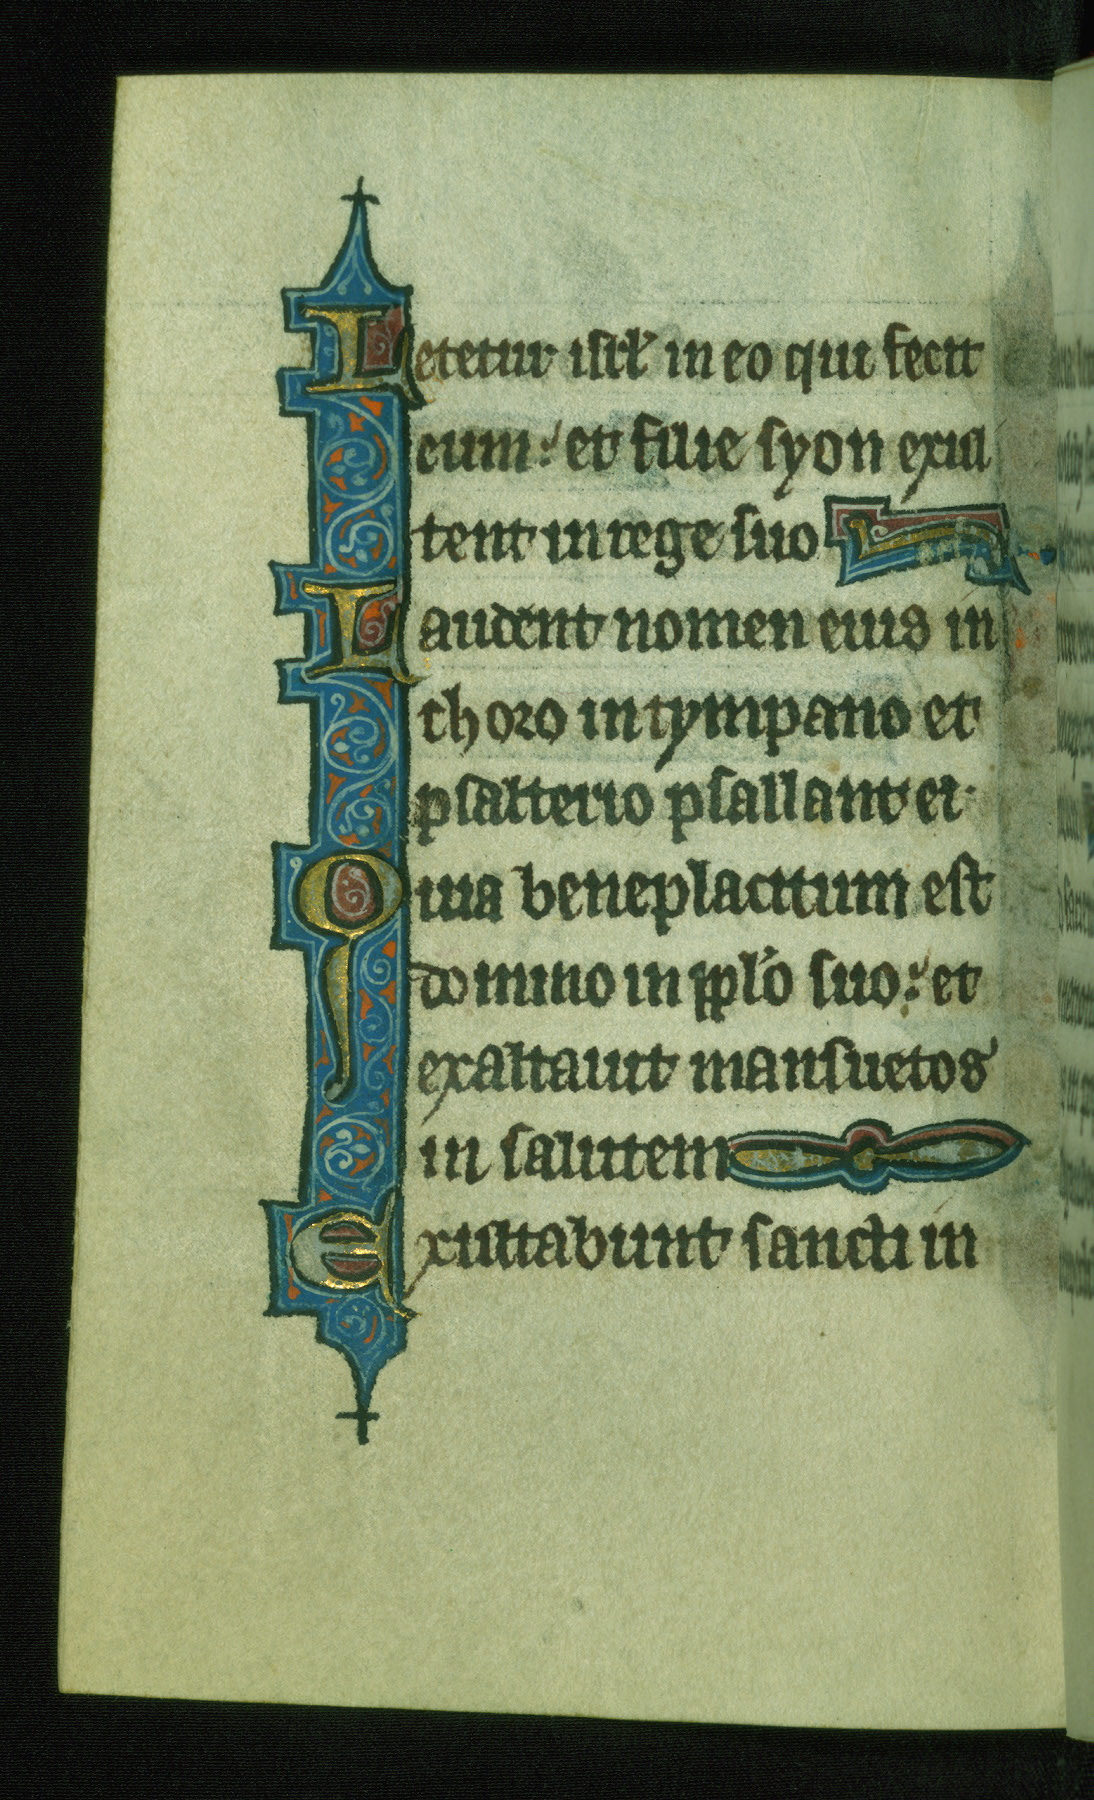 Letetur isrl' in eo qui fecit
eum: et filie syon exul
tent in rege suo
Laudent nomen eius in
choro in tympano et
psalterio psallant ei·
Quia beneplacitum est
domino in pplo suo: et
exaltauit mansuetos
in salutem
Exultabunt sancti in